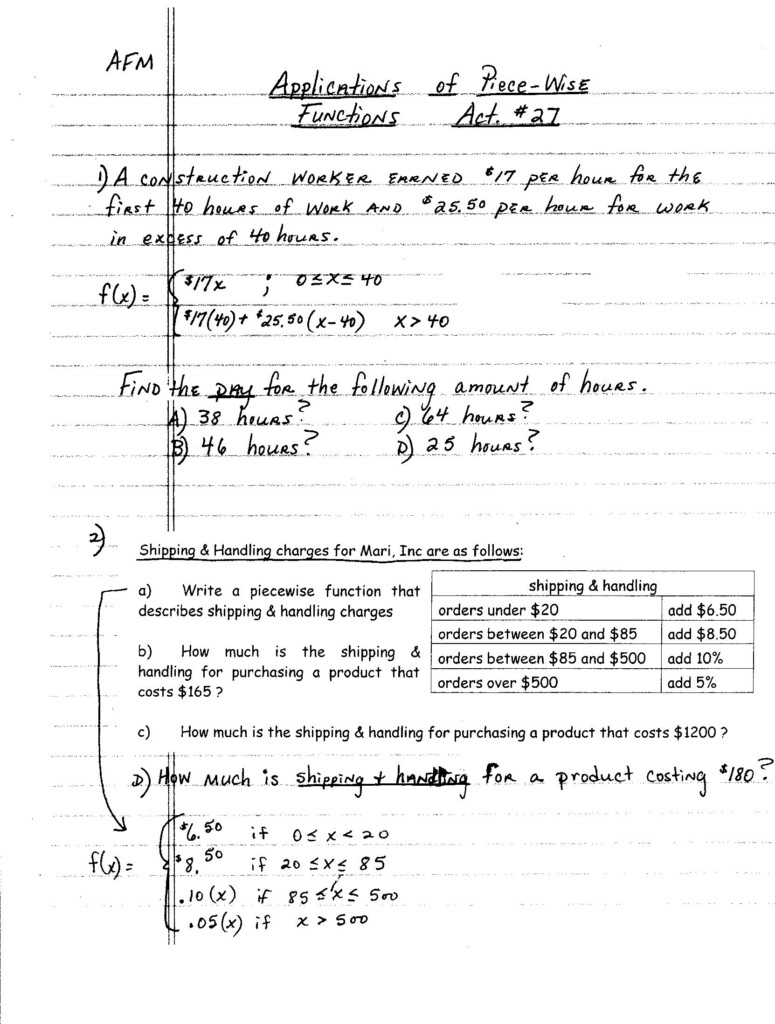 AFM
Applications of Piece-Wise
Functions Act. #27
1) A construction worker earned $17 per hour for the
first 40 hours of work and $25.50 per hour for work
in excess of 40 hours.
f(x) = { $17x ; 0≤x≤40
$17(40)+ $25.50(x-40) x>40
Find the pay for the following amount of hours.
A) 38 hours? C) 64 hours?
B) 46 hours? D) 25 hours?
2) Shipping & Handling charges for Mari, Inc are as follows:
a) Write a piecewise function that
describes shipping & handling charges
b) How much is the shipping &
handling for purchasing a product that
costs $165 ?
shipping & handling
orders under $20 add $6.50
orders between $20 and $85 add $8.50
orders between $85 and $500 add 10%
orders over $500 add 5%
c) How much is the shipping & handling for purchasing a product that costs $1200 ?
D) How much is shipping + handling for a product costing $180?
f(x) = { $6.50 if 0≤x<20
$8.50 if 20≤x≤85
.10(x) if 85≤x≤500
.05(x) if x>500